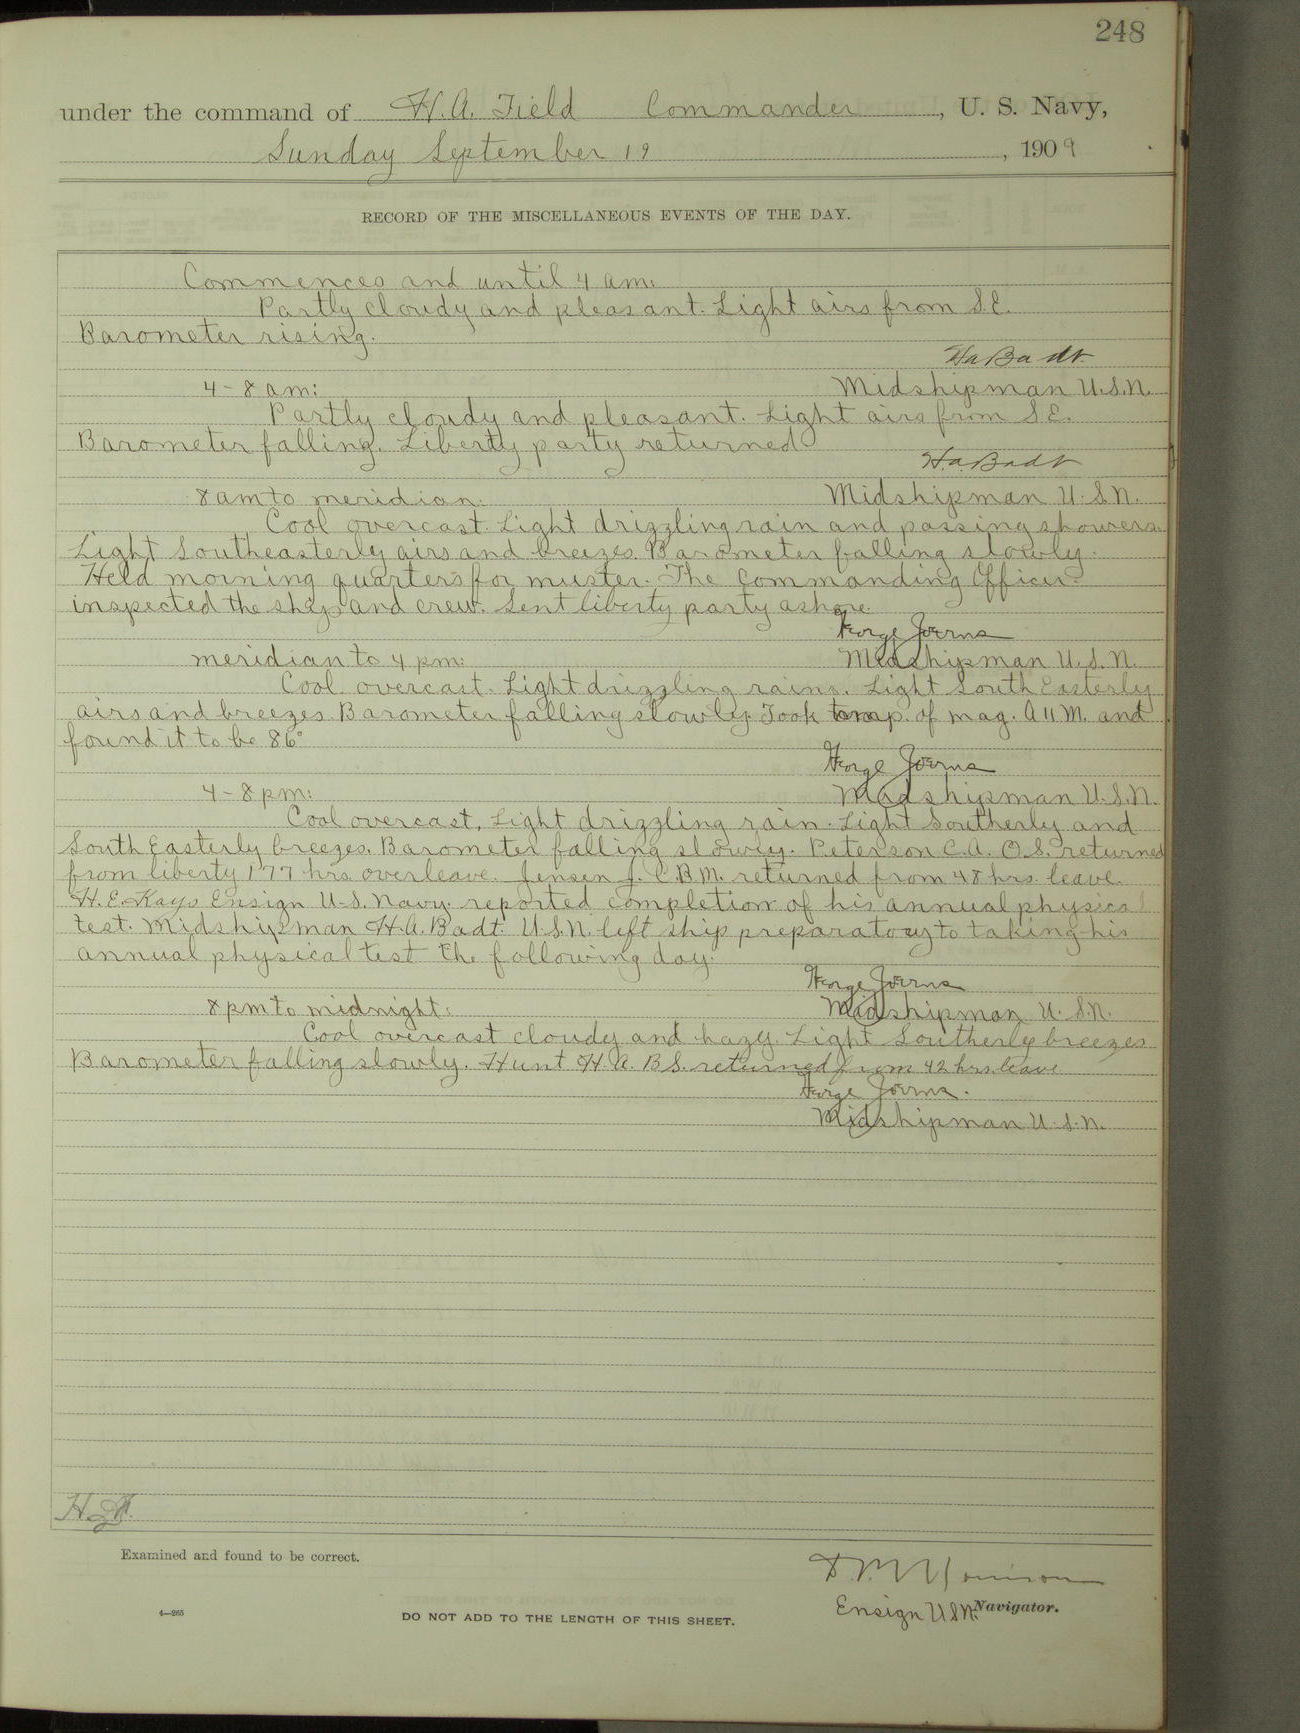 248
under the command of H.A. Field Commander, U. S. Navy,
Sunday September 19, 1909
RECORD OF THE MISCELLANEOUS EVENTS OF THE DAY.
Commences and until 4 am:
Partly cloudy and pleasant. Light airs from S.E.
Barometer rising.
H a Badt.
4-8 am:
Midshipman U.S.N.
Partly cloudy and pleasant. Light airs from S.E.
Barometer falling. Liberty party returned
H. a. Badt
8 am to meridian.
Midshipman U.S.N.
Cool overcast. Light drizzling rain and passing showers.
Light Southeasterly airs and breezes. Barometer falling slowly.
Held morning quarters for muster. The Commanding Officer
inspected the ship and crew. Sent liberty party ashore.
George Joerns
meridian to 4 pm:
Midshipman U.S.N.
Cool overcast. Light drizzling rains. Light South Easterly
airs and breezes. Barometer falling slowly. Took temp. of mag. A 11 M. and
found it to be 86°
George Joerns
4-8 pm:
Midshipman U.S.N.
Cool overcast. Light drizzling rain. Light Southerly and
South Easterly breezes. Barometer falling slowly. Peterson C.A. O.S. returned
from liberty 177 hrs. overleave. Jensen J. C.B.M. returned from 48 hrs. leave.
H.E. Kays Ensign U.S. Navy reported completion of his annual physical
test. Midshipman H.A. Badt U.S.N. left ship preparatory to taking his
annual physical test the following day.
George Joerns
8 pm to midnight:
Midshipman U.S.N.
Cool overcast cloudy and hazy. Light Southerly breezes
Barometer falling slowly. Hunt H.A. B.S. returned from 42 hrs. leave
George Joerns.
Midshipman U.S.N.
Examined and found to be correct.
Ensign U.S.N. Navigator.
4—265
DO NOT ADD TO THE LENGTH OF THIS SHEET.